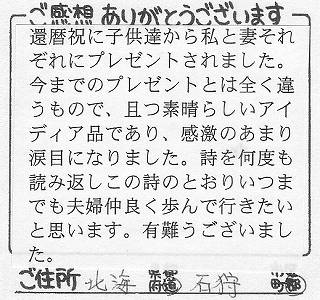 ご感想 ありがとうございます
還暦祝に子供達から私と妻それ
ぞれにプレゼントされました。
今までのプレゼントとは全く違
うもので、且つ素晴らしいアイ
ディア品であり、感激のあまり
涙目になりました。詩を何度も
読み返しこの詩のとおりいつま
でも夫婦仲良く歩んで行きたい
と思います。有難うございまし
た。
ご住所 北海 都道府県 石狩 市郡町